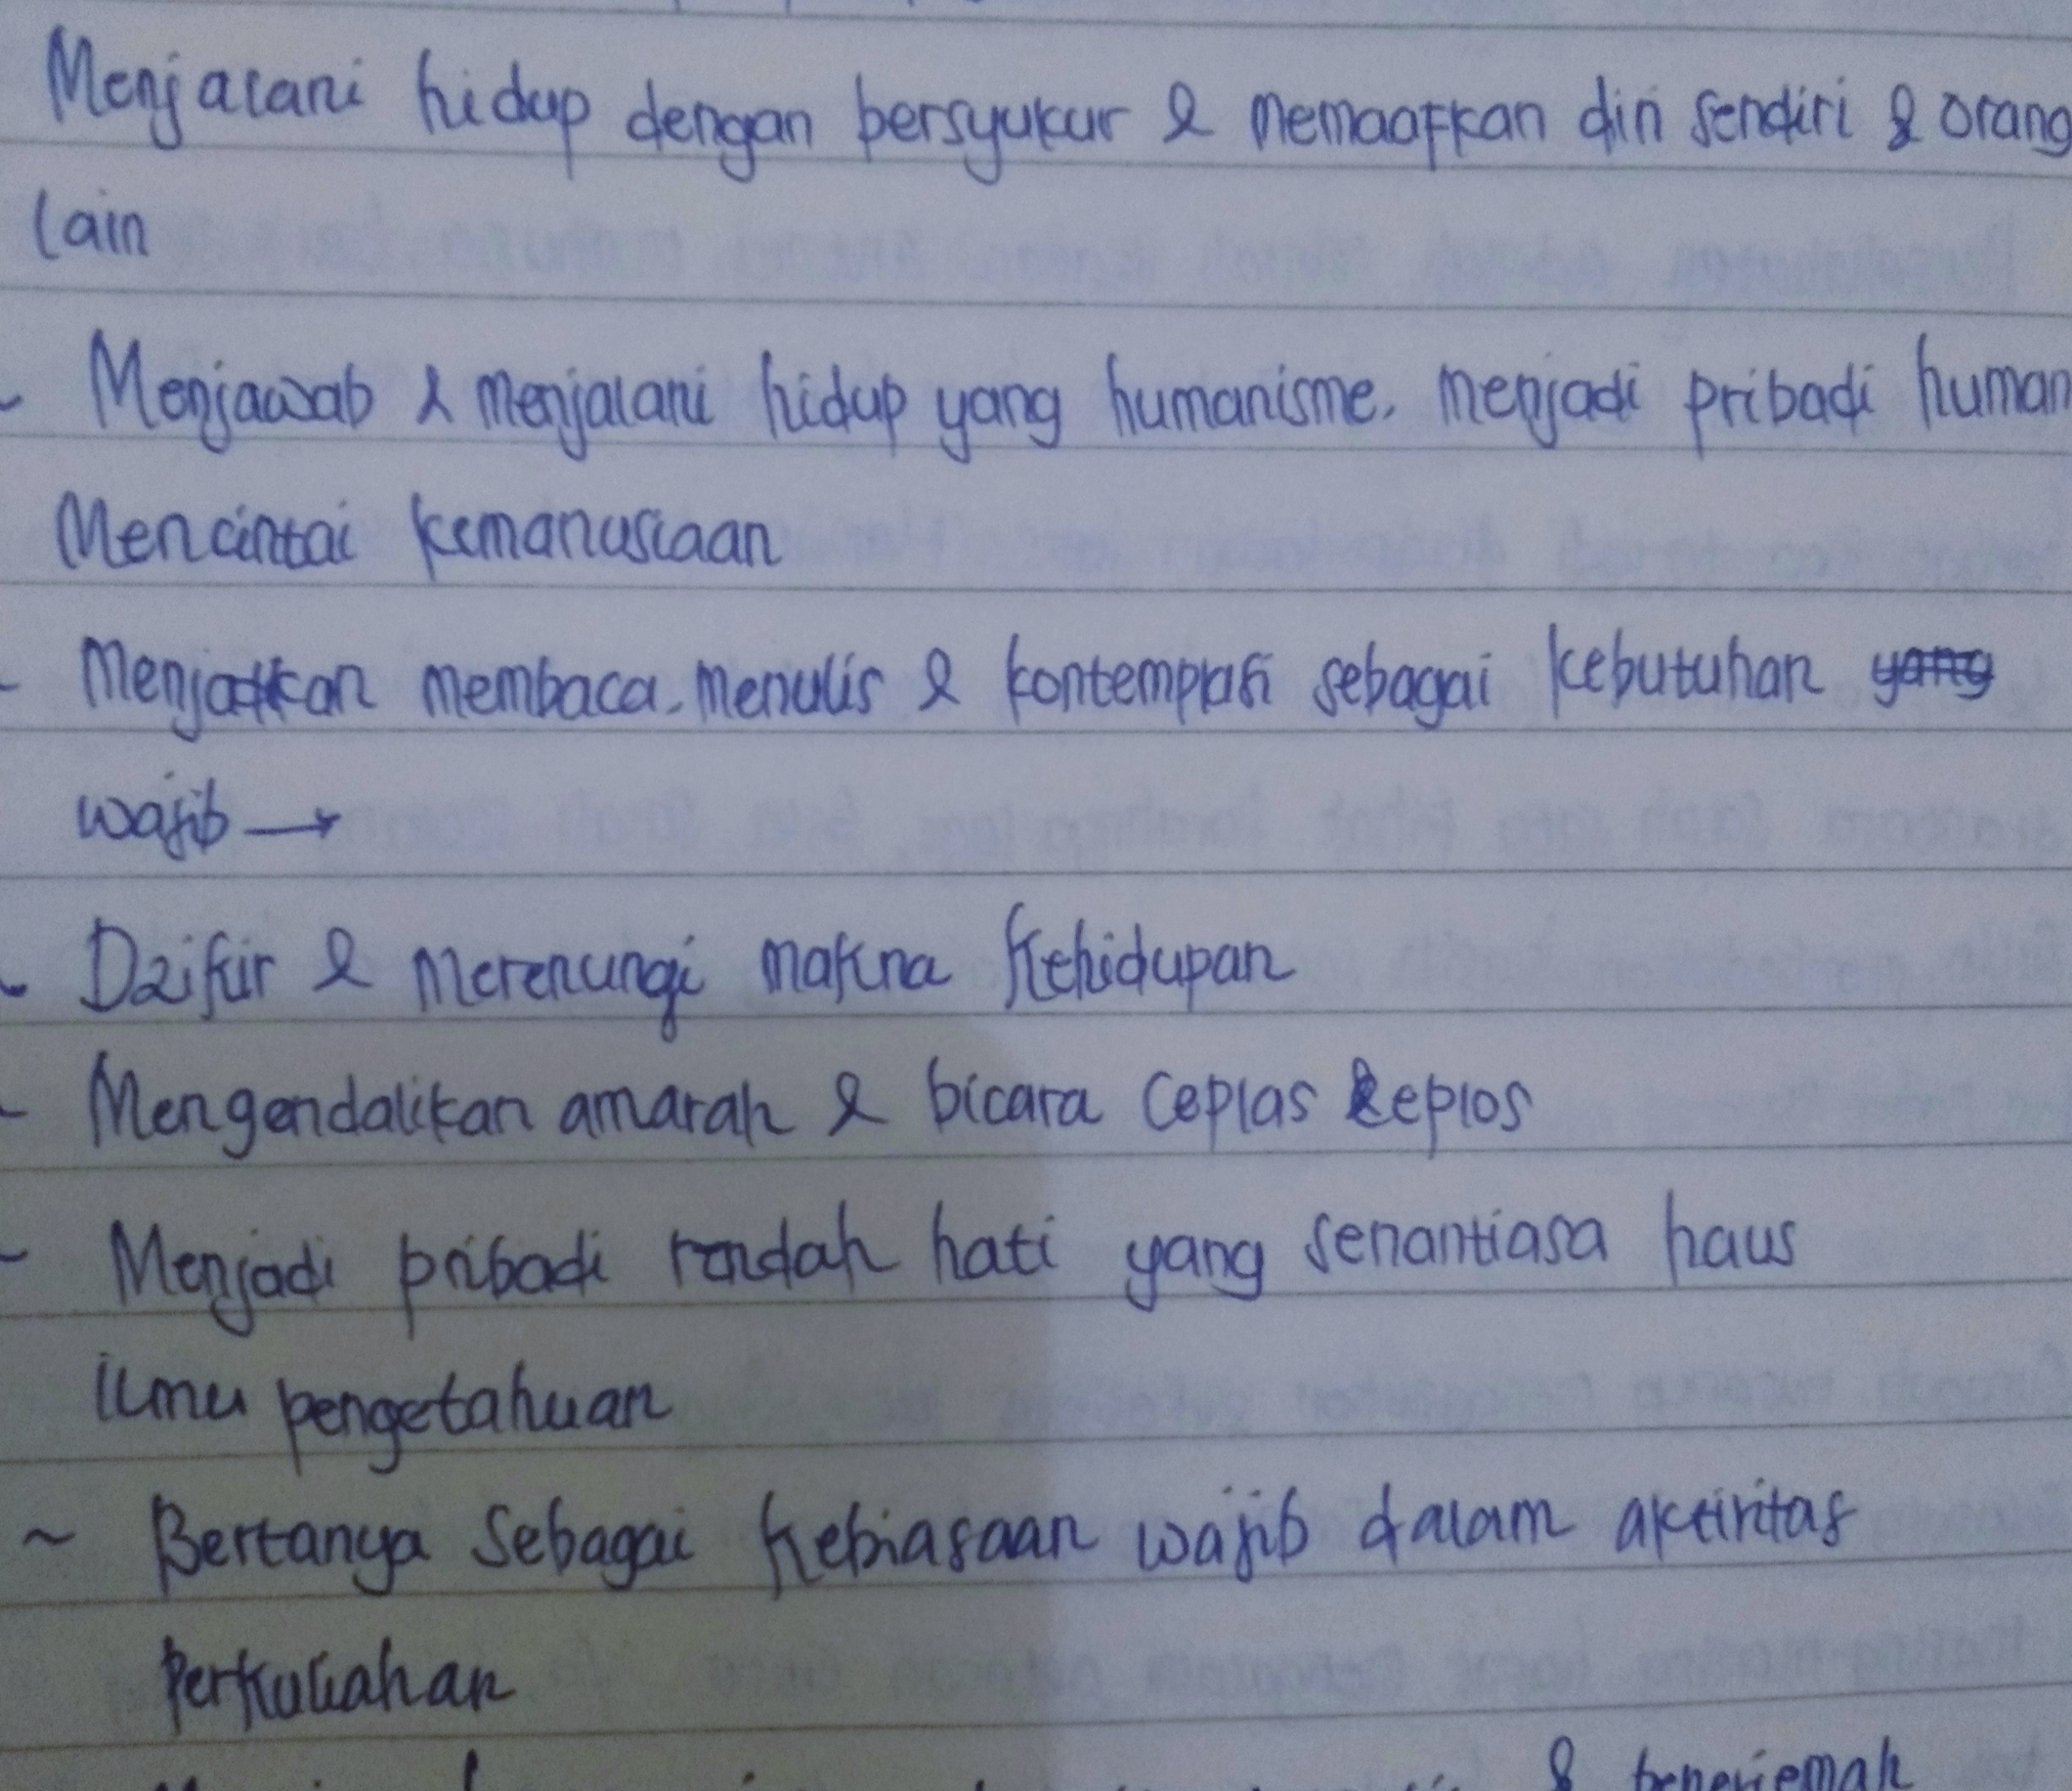 Menjalani hidup dengan bersyukur & memaafkan diri sendiri & orang
lain
- Menjawab & menjalani hidup yang humanisme, menjadi pribadi human
Mencintai kemanusiaan
- Menjadikan membaca, menulis & kontemplasi sebagai kebutuhan yang
wajib →
- Dzikir & Merenungi makna Kehidupan
- Mengendalikan amarah & bicara ceplas ceplos
- Menjadi pribadi rendah hati yang senantiasa haus
ilmu pengetahuan
~ Bertanya sebagai Kebiasaan wajib dalam aktivitas
Perkuliahan
& penerjemah